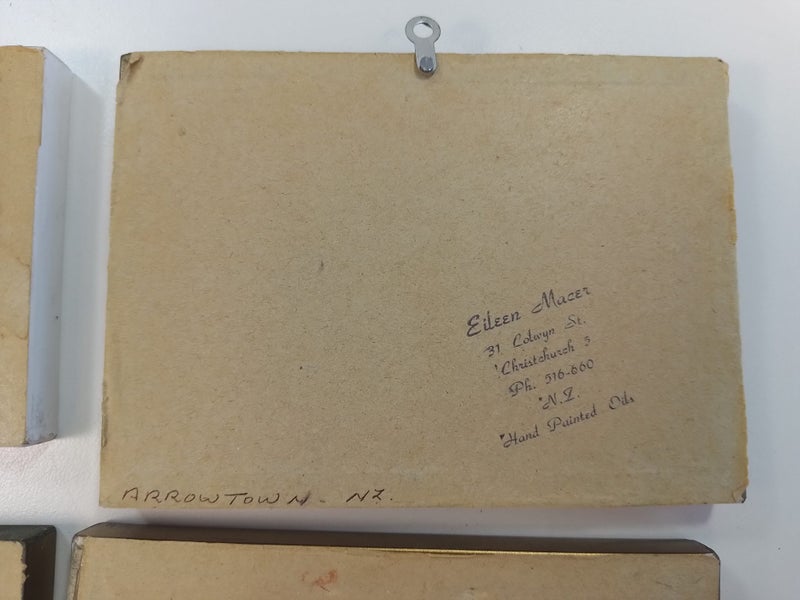 Eileen Macer
31 Colwyn St.
Christchurch 5
Ph. 516-660
N.Z.
Hand Painted Oils
ARROWTOWN - NZ.